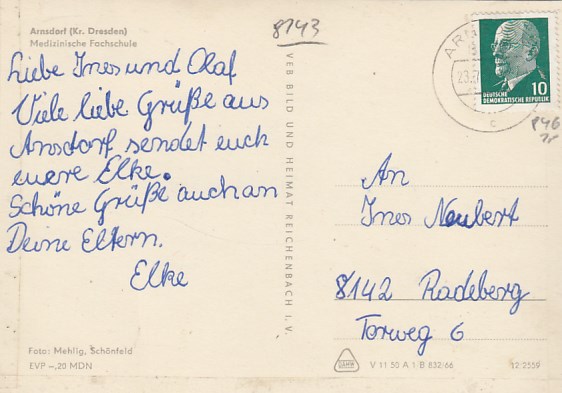 Arnsdorf (Kr. Dresden)
Medizinische Fachschule
8143
Liebe Ines und Olaf
Viele liebe Grüße aus
Arnsdorf sendet euch
euere Elke.
Schöne Grüße auch an
Deine Eltern.
Elke
Foto: Mehlig, Schönfeld
EVP –,20 MDN
VEB BILD UND HEIMAT REICHENBACH I. V.
10
DEUTSCHE
DEMOKRATISCHE REPUBLIK
c
An
Ines Neubert
8142 Radeberg
Torweg 6
V 11 50 A 1 B 832/66
12/2559